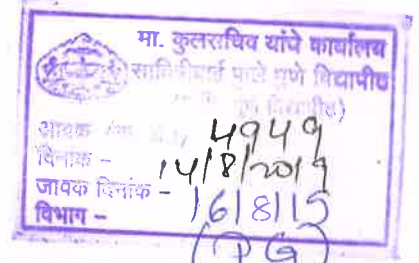 मा. कुलसचिव यांचे कार्यालय
सावित्रीबाई फुले पुणे विद्यापीठ
पुणे विद्यापीठ)
आवक 4949
दिनांक - 14/8/2019
जावक दिनांक - 16/8/15
विभाग -
(PG)